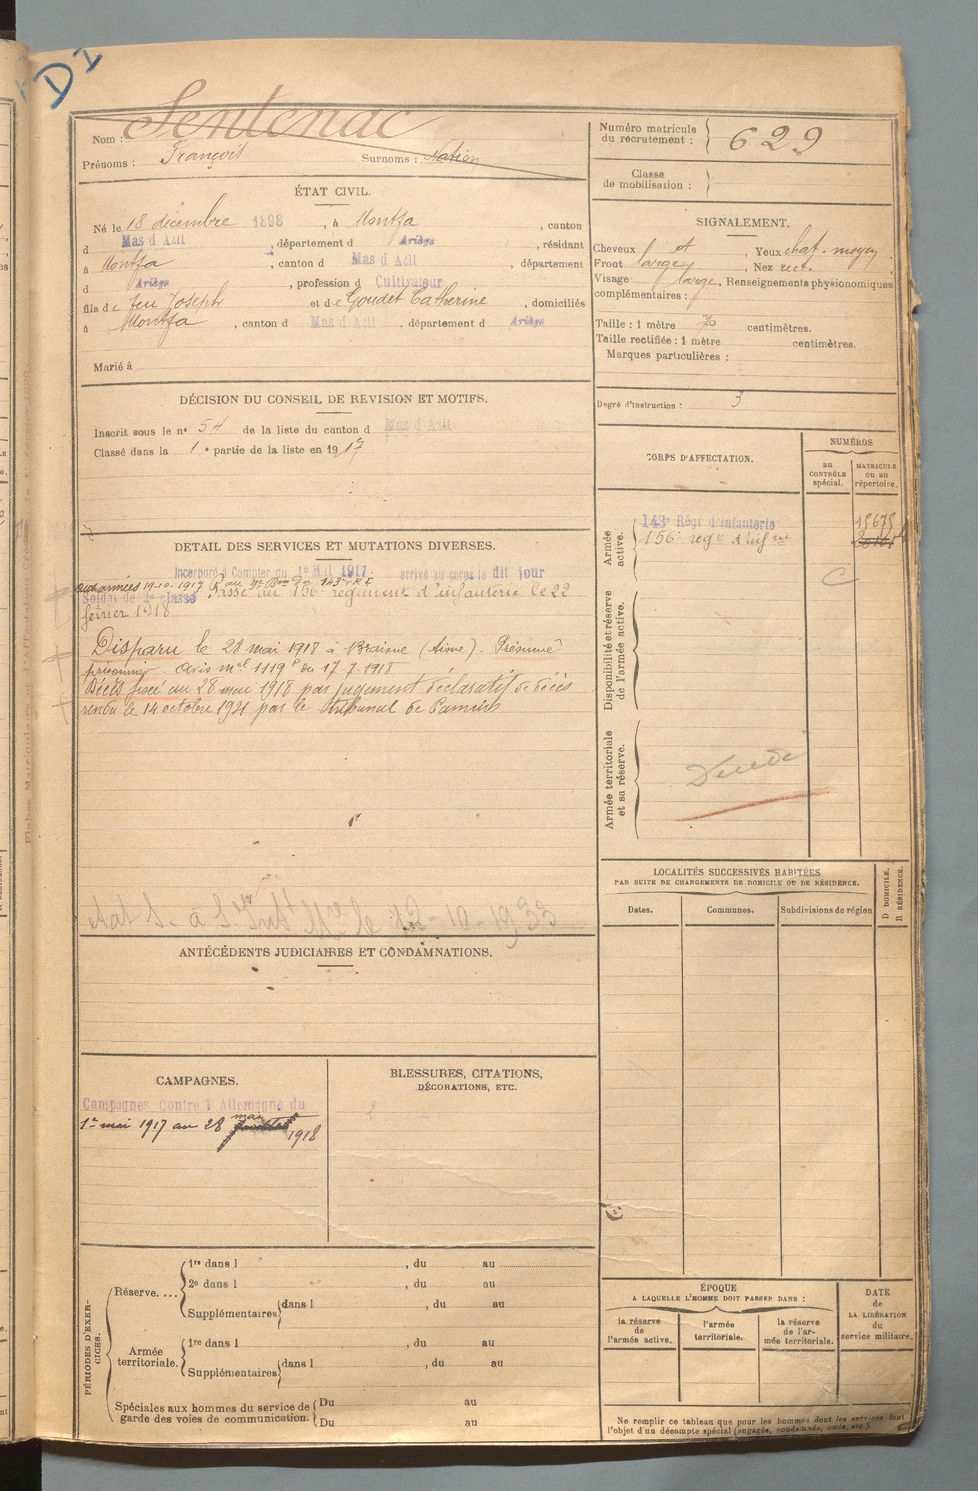 D I
Nom : Sentenac
Prénoms : François Surnoms : Nation
Numéro matricule du recrutement : 629
Classe de mobilisation :
ÉTAT CIVIL.
Né le 18 décembre 1898, à Montfa, canton
d Mas d Azil, département d Ariège, résidant
à Montfa, canton d Mas d Azil, département
d Ariège, profession d Cultivateur
fils de feu Joseph et de Goudet Catherine, domiciliés
à Montfa, canton d Mas d Azil, département d Ariège
Marié à
SIGNALEMENT.
Cheveux , Yeux chat. moyen
Front large, Nez rect.
Visage large, Renseignements physionomiques
complémentaires :
Taille : 1 mètre 70 centimètres.
Taille rectifiée : 1 mètre centimètres.
Marques particulières :
Degré d'instruction : 3
DÉCISION DU CONSEIL DE REVISION ET MOTIFS.
Inscrit sous le n° 54 de la liste du canton d Mas d Azil
Classé dans la 1e partie de la liste en 1917
DETAIL DES SERVICES ET MUTATIONS DIVERSES.
Incorporé à Compter du 1er Mai 1917 arrivé au corps le dit jour
aux armées 19.10.1917 au 9e Bon du 143e R I
Soldat de 2e classe Passé au 156e régiment d'infanterie le 22
février 1918
Disparu le 28 mai 1918 à Braisne (Aisne) - Présumé
prisonnier. Avis mel 1119 P du 17.7.1918
Décès fixé au 28 mai 1918 par jugement déclaratif de décès
rendu le 14 octobre 1921 par le tribunal de Pamiers
12-10-1933
CORPS D'AFFECTATION.
NUMÉROS
au CONTRÔLE spécial.
MATRICULE ou au répertoire.
Armée active.
143e Régt d'Infanterie 15675
156e regt d'infie
C
Disponibilité et réserve de l'armée active.
Armée territoriale et sa réserve.
LOCALITÉS SUCCESSIVES HABITÉES
PAR SUITE DE CHANGEMENTS DE DOMICILE OU DE RÉSIDENCE.
Dates. Communes. Subdivisions de région
D DOMICILE. R RÉSIDENCE.
ANTÉCÉDENTS JUDICIAIRES ET CONDAMNATIONS.
CAMPAGNES.
Campagnes Contre l'Allemagne du
1er mai 1917 au 28 mai 1918
BLESSURES, CITATIONS,
DÉCORATIONS, ETC.
PÉRIODES D'EXERCICES.
Réserve....
1re dans l , du au
2e dans l , du au
Supplémentaires dans l , du au
Armée territoriale.
1re dans l , du au
Supplémentaires dans l , du au
Spéciales aux hommes du service de garde des voies de communication.
Du au
Du au
ÉPOQUE
A LAQUELLE L'HOMME DOIT PASSER DANS :
la réserve de l'armée active.
l'armée territoriale.
la réserve de l'armée territoriale.
DATE de LA LIBÉRATION du service militaire.
Ne remplir ce tableau que pour les hommes dont les services font
l'objet d'un décompte spécial (engagés, condamnés, omis, etc.).